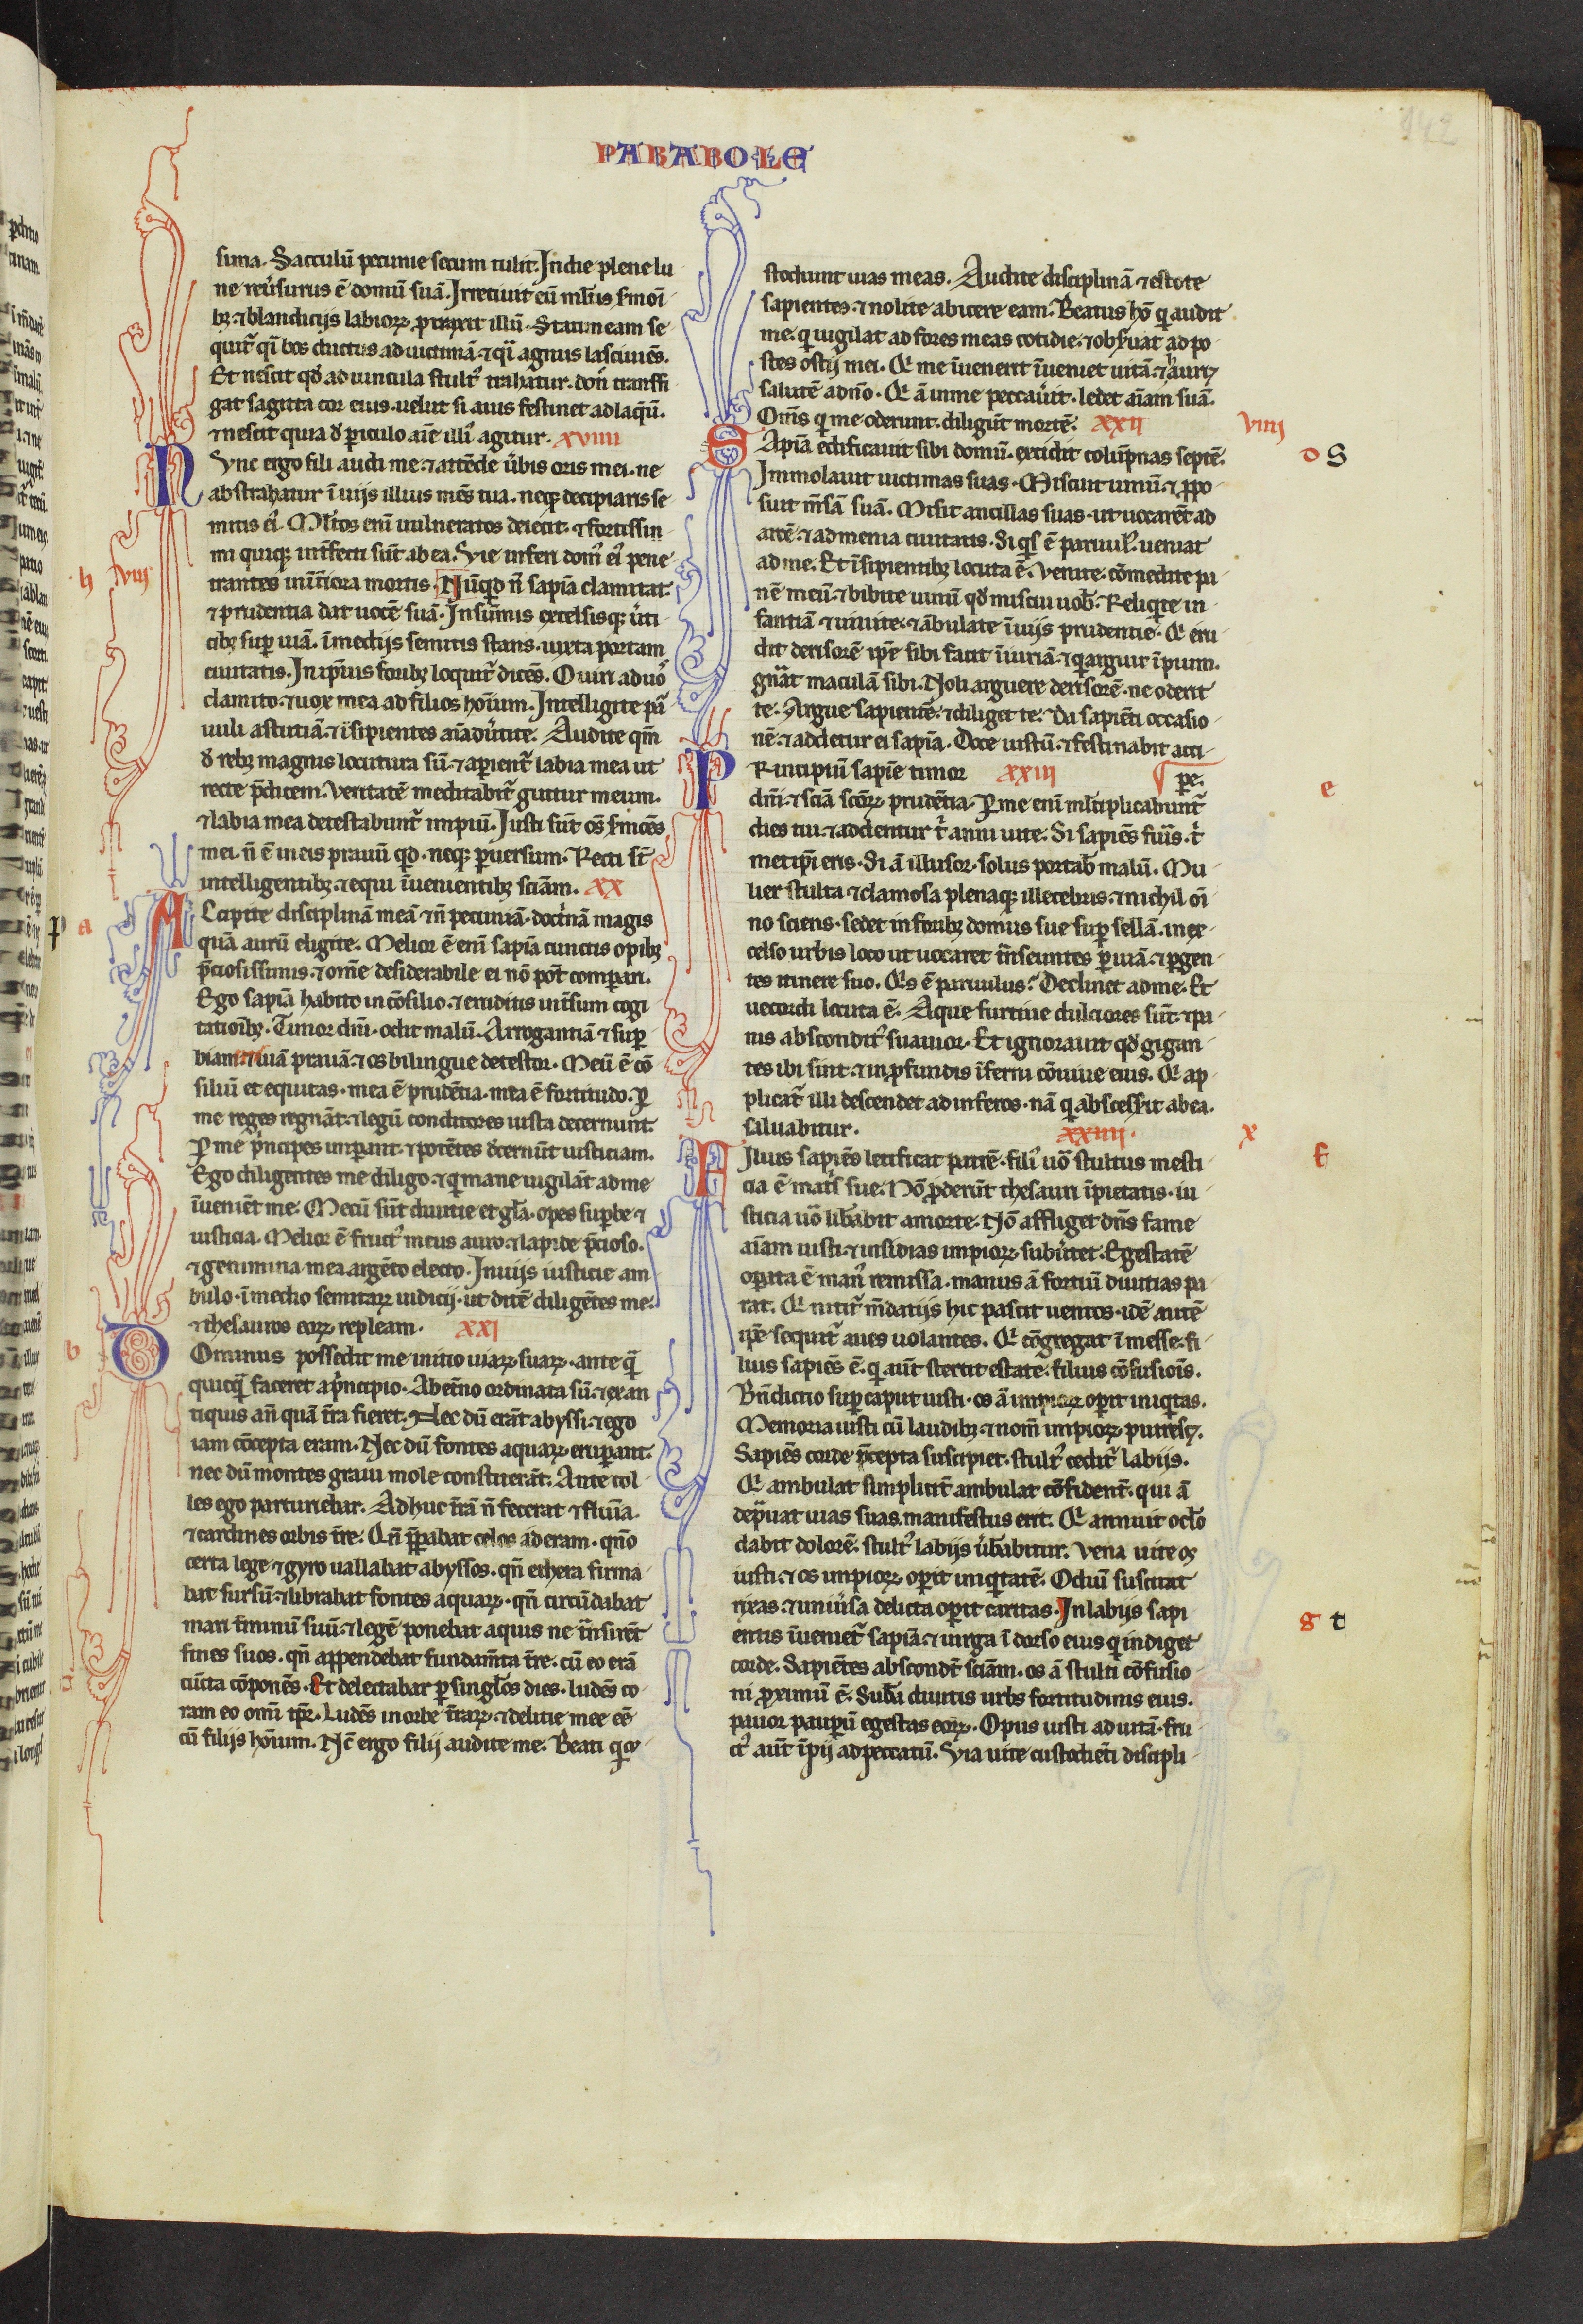 142
PARABOLE
sima. Sacculū pecunie secum tulit. In die plene lu
ne reũsurus ē domū suā. Irretiuit eū ml̃tis s̃moĩ
bꝫ. ⁊ blandicijs labioꝝ ꝓtraxit illū. Statim eam se
quit᷑ qͥ bos ductus ad uictimā. ⁊ qͥ agnus lasciuiēs.
Et nescit qd̃ ad uincula stult᷒ trahatur. don̄ transfi
gat sagitta cor eius. uelut si auis festinet ad laq̄ū.
⁊ nescit quia đ ꝑiculo aīe illi᷒ agitur. xviiii
Nvnc ergo fili audi me. ⁊ attēde ũbis oris mei. ne
abstrahatur ī uijs illius mēs tua. neqꝫ decipiaris se
mitis ei᷒. Ml̃tos enī uulneratos deiecit. ⁊ fortissi
mi quiqꝫ int̃fecti sūt ab ea. Vie inferi dom᷒ ei᷒ pene
trantes in int̃iora mortis. Nūqͥd n̄ sapīa clamitat.
h viii
⁊ prudentia dat uocē suā. In sūmis excelsisqꝫ ũti
cibꝫ suꝑ uiā. ī medijs semitis stans. iuxta portam
ciuitatis. In ip̄ius foribꝫ loquit᷑ dicēs. O uiri ad uos
clamito. ⁊ uox mea ad filios hoīum. Intelligite paͬ
uuli astutiā. ⁊ īsipientes aīaduũtite. Audite qm̄
đ rebꝫ magnis locutura sū. ⁊ aꝑient᷑ labia mea ut
recte p̄dicem. Veritatē meditabit᷑ guttur meum.
⁊ labia mea detestabunt᷑ impiū. Iusti sūt om̄s s̃mões
mei. n̄ ē in eis prauū qͥd. neqꝫ ꝑuersum. Recti st̄
intelligentibꝫ. ⁊ equi īuenientibꝫ sciām. xx
a
Accipite disciplinā meā ⁊ n̄ pecuniā. doct̃nā magis
quā aurū eligite. Melior ē enī sapīa cunctis opibꝫ
p̄ciosissimis. ⁊ om̄e desiderabile ei nō pōt compari.
Ego sapīa habito in cōsilio. ⁊ eruditis int̃sum cogi
tatiōibꝫ. Timor dn̄i. odit malū. Arrogantiā ⁊ suꝑ
biam ⁊ uiā prauā. ⁊ os bilingue detestor. Meū ē cō
siliū et equitas. mea ē prudētia. mea ē fortitudo. ꝑ
me reges regnāt. ⁊ legū conditores iusta decernunt.
ꝑ me pͥncipes imꝑant. ⁊ potētes đcernūt iusticiam.
Ego diligentes me diligo. ⁊ qͥ mane uigilāt ad me
īueniēt me. Mecū sūt diuitie et gl̃a. opes suꝑbe ⁊
iusticia. Melior ē fruct᷒ meus auro. ⁊ lapide p̄cioso.
⁊ genimina mea argēto electo. In uijs iusticie am
bulo. ī medio semitaꝝ iudicij. ut ditē diligētes me.
⁊ thesauros eoꝝ repleam. xxi
b
Dominus possedit me initio uiaꝝ suaꝝ. ante qͣ
quicqͣ faceret a pͥncipio. Ab et̃no ordinata sū. ⁊ ex an
tiquis an̄ quā t̃ra fieret. Nec dū erāt abyssi. ⁊ ego
iam cōcepta eram. Nec dū fontes aquaꝝ eruꝑant.
nec dū montes graui mole constiterāt. Ante col
les ego parturiebar. Adhuc t̃rā n̄ fecerat ⁊ fluīa.
⁊ cardines orbis t̃re. Qn̄ p̄ꝑabat celos aderam. qn̄o
certa lege ⁊ gyro uallabat abyssos. qn̄ ethera firma
bat sursū. ⁊ librabat fontes aquaꝝ. qn̄ circūdabat
mari t̃minū suū. ⁊ legē ponebat aquis ne t̃nsirēt
fines suos. qn̄ appendebat fundam̄ta t̃re. cū eo erā
cūcta cōponēs. Et delectabar ꝑ singl̃os dies. ludēs co
ram eo omī tp̄r. Ludēs in orbe t̃raꝝ. ⁊ delitie mee ēē
cū filijs hoīum. Nc̄ ergo filij audite me. Beati qͥ cu
stodiunt uias meas. Audite disciplinā ⁊ estote
sapientes. ⁊ nolite abicere eam. Beatus hō qͥ audit
me. qͥ uigilat ad fores meas cotidie. ⁊ obs̃uat ad po
stes ostij mei. Qͥ me īuenerit īueniet uitā. ⁊ hauriꝫ
salutē a dn̄o. Qͥ ā in me peccauit. ledet aīam suā.
Om̄s qͥ me oderunt. diligūt mortē. xxii
viiii
d S
Sapīa edificauit sibi domū. excidit colūpnas septē.
Immolauit uictimas suas. Miscuit uinū. ⁊ ꝓpo
suit m̄sā suā. Misit ancillas suas. ut uocarēt ad
arcē. ⁊ ad menia ciuitatis. Si qͥs ē paruul᷒. ueniat
ad me. Et īsipientibꝫ locuta ē. Venite. cōmedite pa
nē meū. ⁊ bibite uinū qd̃ miscui uob̃. Relinqͥte in
fantiā ⁊ uiuite. ⁊ ābulate ī uijs prudentie. Qͥ eru
dit derisorē ip̄e sibi facit īiuriā. ⁊ qͥ arguit īpium.
gn̄at maculā sibi. Noli arguere derisorē. ne oderit
te. Argue sapientē. ⁊ diliget te. Da sapiēti occasio
nē. ⁊ addetur ei sapīa. Doce iustū. ⁊ festinabit acci
pe.
Principiū sapīe timor xxiii
e
dn̄i. ⁊ sciā sc̄oꝝ prudētia. ꝑ me enī ml̃tiplicabunt᷑
dies tui. ⁊ addentur t̃ anni uite. Si sapiēs fuĩs. t̃
metip̄i eris. Si ā illusor. solus portab̃ malū. Mu
lier stulta ⁊ clamosa plenaqꝫ illecebris. ⁊ nichil oī
no sciens. sedet in foribꝫ domus sue suꝑ sellā. in ex
celso urbis loco ut uocaret t̃nseuntes ꝑ uiā. ⁊ ꝑgen
tes itinere suo. Qͥs ē paruulus? Declinet ad me. Et
uecordi locuta ē. Aque furtiue dulciores sūt. ⁊ pa
nis abscondit᷒ suauior. Et ignorauit qd̃ gigan
tes ibi sint. ⁊ in ꝓfundis īferni cōuiue eius. Qͥ ap
plicat᷑ illi descendet ad inferos. nā qͥ abscessit ab ea.
saluabitur. xxiiii.
x
f
Filius sapiēs letificat patrē. fili᷒ uō stultus mesti
cia ē mat̃s sue. Nō ꝓderūt thesauri īpietatis. iu
sticia uō libabit a morte. Nō affliget dn̄s fame
aīam iusti. ⁊ insidias impioꝝ subũtet. Egestatē
oꝑata ē man᷒ remissa. manus ā fortiū diuitias pa
rat. Qͥ nitit᷑ m̄datijs hic pascit uentos. idē autē
ip̄e sequit᷑ aues uolantes. Qͥ cōgregat ī messe. fi
lius sapiēs ē. qͥ aūt stertit estate. filius cōfusiōis.
Bn̄dictio suꝑ caput iusti. os ā impioꝝ oꝑit iniqͥtas.
Memoria iusti cū laudibꝫ. ⁊ nom̄ impioꝝ putrescꝫ.
Sapiēs corde p̄cepta suscipiet. stult᷒ cedit᷑ labijs.
Qͥ ambulat simplicit̃ ambulat cōfident̃. qui ā
dep̃uat uias suas manifestus erit. Qͥ annuit ocl̃o
dabit dolorē. stult᷒ labijs ũb̃abitur. Vena uite os
iusti. ⁊ os impioꝝ oꝑit iniqͥtatē. Odiū suscitat
rixas. ⁊ uniũsa delicta oꝑit caritas. In labijs sapi
g t
entis īueniet᷑ sapīa. ⁊ uirga ī dorso eius qͥ indiget
corde. Sapiētes abscondt̄ sciām. os ā stulti cōfusio
ni ꝓximū ē. Sub̃a diuitis urbs fortitudinis eius.
pauor pauꝑū egestas eoꝝ. Opus iusti ad uitā. fru
ct᷒ aūt īpij ad peccatū. Via uite custodiēti discipli